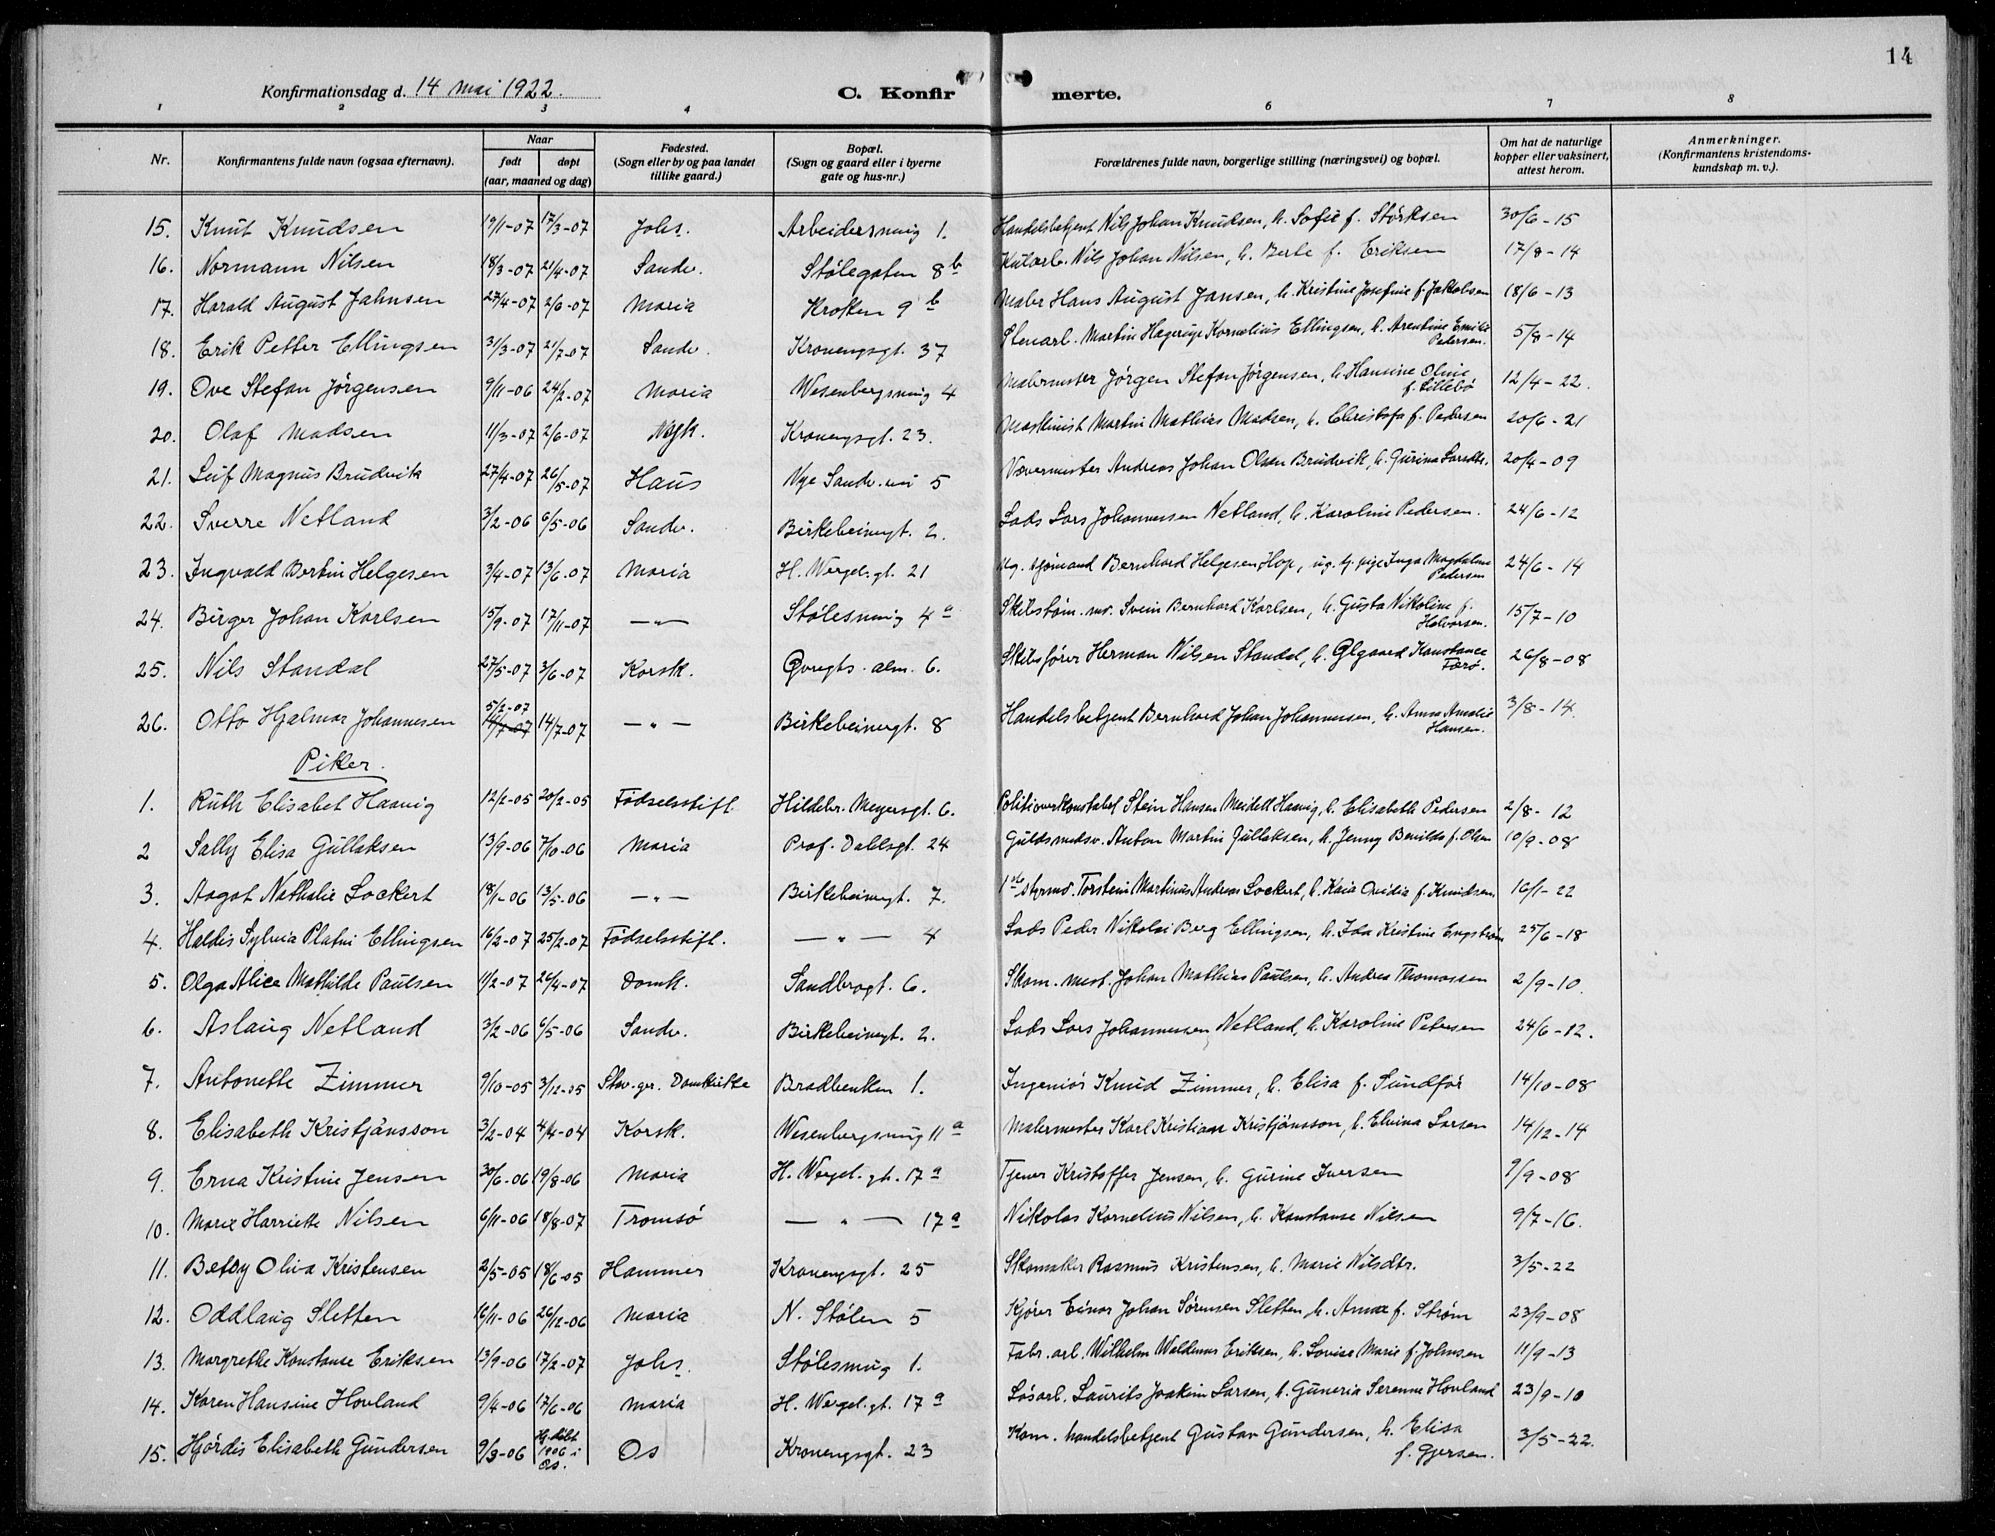 14
Konfirmationsdag d. 14 mai 1922. C. Konfirmerte.
1 2 3 4 6 7 8
Nr. Konfirmantens fulde navn (ogsaa efternavn). Naar født døpt (aar, maaned og dag) Fødested. (Sogn eller by og paa landet tillike gaard.) Bopæl. (Sogn og gaard eller i byerne gate og hus-nr.) Forældrenes fulde navn, borgerlige stilling (næringsvei) og bopæl. Om hat de naturlige kopper eller vaksinert, attest herom. Anmerkninger. (Konfirmantens kristendomskundskap m. v.).
15. Knut Knudsen 19/1-07 17/3-07 Johs. Arbeidersmug 1. Handelsbetjent Nils Johan Knudsen, h. Sofie f. Størksen 30/6-15
16. Normann Nilsen 18/3-07 21/4-07 Sandv. Stølegaten 8b Kularb. Nils Johan Nilsen, h. Berte f. Eriksen 17/8-14
17. Harald August Jahnsen 27/4-07 2/6-07 Maria Kroken 9b Maler Hans August Jansen, h. Kristine Josefine f. Jakobsen 18/6-13
18. Erik Petter Ellingsen 31/3-07 21/7-07 Sandv. Kronengsgt. 37 Stenarb. Martin Hagerup Kornelius Ellingsen, h. Arentine Emilie Pedersen. 5/8-14
19. Ove Stefan Jörgensen 9/11-06 24/2-07 Maria Wesenbergsmug 4 Malermester Jörgen Stefan Jörgensen, h. Hansine Oline f. Lillebö 12/4-22.
20. Olaf Madsen 11/3-07 2/6-07 Nyk. Kronengsgt. 23. Maskinist Martin Mathias Madsen, h. Christofa f. Pedersen 20/6-21
21. Leif Magnus Brudvik 27/4-07 26/5-07 Haus Nye Sandv. vei 5 Vævermester Andreas Johan Olsen Brudvik, h. Gurina Larsdtr. 20/4-09
22. Sverre Netland 3/2-06 6/5-06 Sandv. Birkebeinergt. 2. Lods Lars Johannessen Netland, h. Karoline Pedersen. 24/6-12
23. Ingvald Bertin Helgesen 3/4-07 13/6-07 Maria H. Wergel. gt. 21 Ug. sjömand Bernhard Helgesen Hop, ug. tj. pige Inga Magdalene Pedersen 24/6-14
24. Birger Johan Karlsen 15/9-07 17/11-07 —"— Stølesmug 4a Skibstøm. mr. Svein Bernhard Karlsen, h. Gusta Nikoline f. Halvorsen. 15/7-10
25. Nils Standal 27/5-07 3/6-07 Korsk. Øvregts. alm. 6. Skibsfører Herman Nilsen Standal, h. Olgaard Konstance Færø. 26/8-08
26. Otto Hjalmar Johannesen 5/2-07 14/7-07 14/7-07 —"— Birkebeinergt. 8 Handelsbetjent Bernhard Johan Johannessen, h. Anna Amalie Hansen. 3/8-14.
Piker.
1. Ruth Elisabet Haavig 12/2-05 20/2-05 Födselsstift. Hildebr. Meyersgt. 6. Politioverkonstabel Stein Hansen Meidell Haavig, h. Elisabeth Pedersen 2/8-12
2 Sally Elisa Gullaksen 13/9-06 7/10-06 Maria Prof. Dahlsgt. 24 Guldsmedsv. Anton Martin Gullaksen, h. Jenny Benilde f. Olsen 10/9-08
3. Aagot Nathalie Lockert 18/1-06 13/5-06 —"— Birkebeinergt. 7. 1ste styrmd. Torstein Martinus Andreas Lockert, h. Kaia Ovidia f. Knudsen 16/1-22
4. Haldis Sylvia Platni Ellingsen 16/2-07 25/2-07 Födselsstift. —"— 4 Lods Peder Nikolai Berg Ellingsen, h. Ida Kristine Engström 25/6-18
5. Olga Alice Mathilde Paulsen 11/2-07 26/4-07 Domk. Sandbrogt. 6. Skom. mest. Johan Mathias Paulsen, h. Andrea Thomassen 2/9-10.
6. Aslaug Netland 3/2-06 6/5-06 Sandv. Birkebeinergt. 2. Lods Lars Johannessen Netland, h. Karoline Petersen 24/6-12.
7. Antonette Zimmer 9/10-05 3/12-05 Stav-ger. Domkirke Bradbenken 1. Ingeniör Knud Zimmer, h. Elisa f. Sundför 14/10-08
8. Elisabeth Kristjánsson 3/2-04 4/4-04 Korsk. Wesenbergsmug 11a Malermester Karl Kristian Kristjánsson, h. Elvina Larsen 14/12-14
9. Erna Kristine Jensen 30/6-06 19/8-06 Maria H. Wergel. gt. 17a Tjener Kristoffer Jensen, h. Gurine Iversen 9/9-08
10. Marie Harriette Nilsen 6/11-06 18/8-07 Tromsö —"— 17a Nikolas Kornelius Nilsen, h. Konstanse Nilsen 9/7-16.
11. Betsy Oliva Kristensen 2/5-05 18/6-05 Hammer Kronengsgt. 25 Skomaker Rasmus Kristensen, h. Marie Nilsdtr. 3/5-22
12. Oddlaug Sletten 16/11-06 26/12-06 Maria N. Stølen 5 Kjører Einar Johan Sørensen Sletten, h. Anna f. Strøm 23/9-08
13. Margrethe Konstanse Eriksen 13/9-06 17/2-07 Johs. Stølesmug 1. Fabr. arb. Wilhelm Waldemar Eriksen, h. Lovise Marie f. Johnsen 11/9-13
14. Karen Hansine Hovland 9/4-06 17/6-06 Maria H. Wergel. gt. 17a Løsarb. Laurits Joakim Larsen, h. Guneria Serenne Hovland 23/9-10
15. Hjördis Elisabeth Gundersen 9/3-06 Hj. døbt 1906 i Os. Os Kronengsgt. 23 Kom. handelsbetjent Gustav Gundersen, h. Elisa f. Gjersen. 3/5-22.